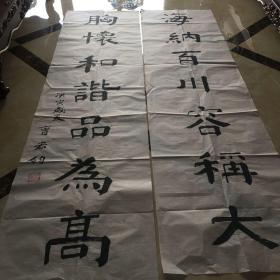 海納百川容稱大
胸懷和諧品為高